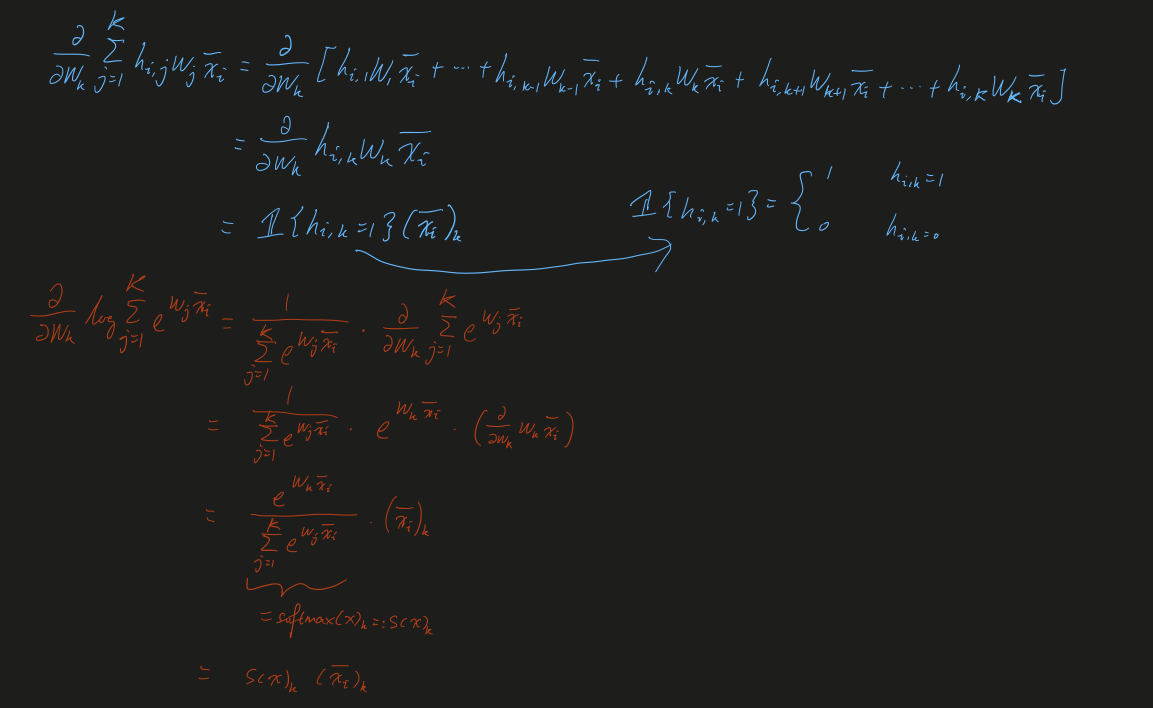 ∂/∂w_k Σ_{j=1}^{K} h_{i,j} w_j x̄_i = ∂/∂w_k [h_{i,1} w_1 x̄_i + ... + h_{i,k-1} w_{k-1} x̄_i + h_{i,k} w_k x̄_i + h_{i,k+1} w_{k+1} x̄_i + ... + h_{i,K} w_K x̄_i]
= ∂/∂w_k h_{i,k} w_k x̄_i
= 𝟙{h_{i,k}=1}(x̄_i)_k
𝟙{h_{i,k}=1} = { 1 h_{i,k}=1
0 h_{i,k}=0
∂/∂w_k log Σ_{j=1}^{K} e^{w_j x̄_i} = 1/(Σ_{j=1}^{K} e^{w_j x̄_i}) · ∂/∂w_k Σ_{j=1}^{K} e^{w_j x̄_i}
= 1/(Σ_{j=1}^{K} e^{w_j x̄_i}) · e^{w_k x̄_i} · (∂/∂w_k w_k x̄_i)
= e^{w_k x̄_i}/(Σ_{j=1}^{K} e^{w_j x̄_i}) · (x̄_i)_k
= softmax(x)_k =: s(x)_k
= s(x)_k (x̄_i)_k